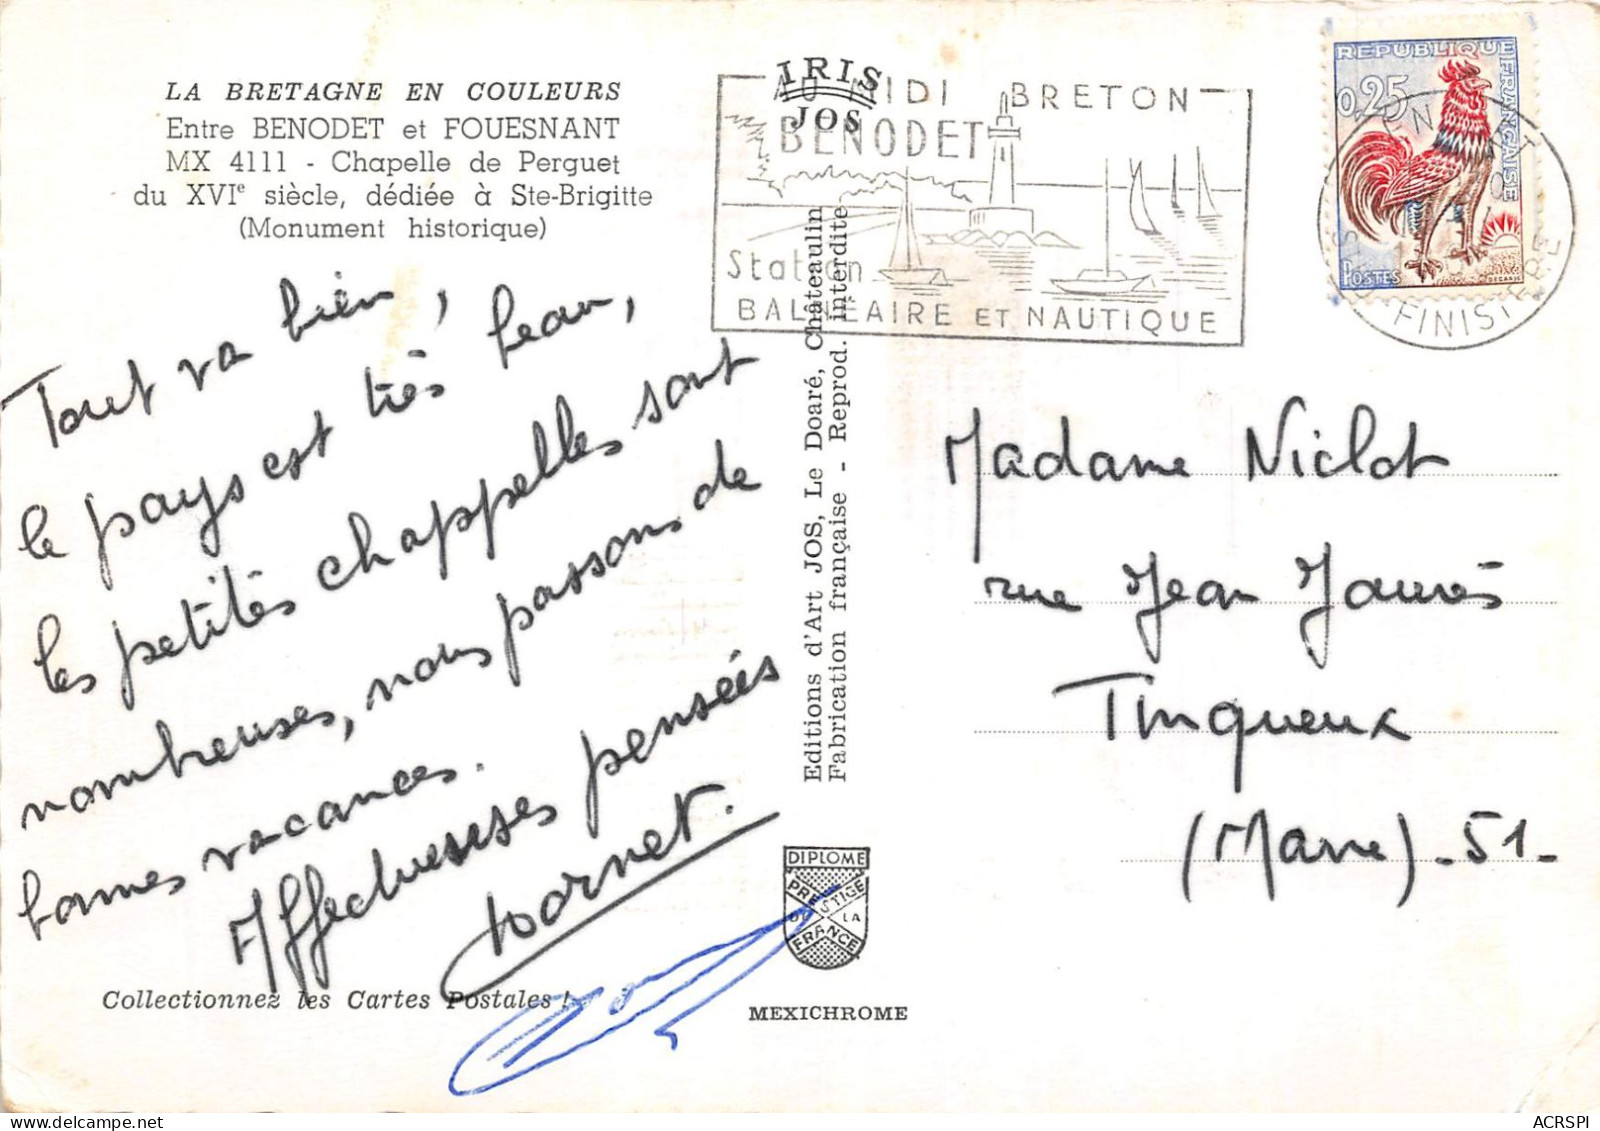 LA BRETAGNE EN COULEURS
Entre BENODET et FOUESNANT
MX 4111 - Chapelle de Perguet
du XVIᵉ siècle, dédiée à Ste-Brigitte
(Monument historique)
Tout va bien,
le pays est très beau,
les petites chappelles sont
nombreuses, nous passons de
bonnes vacances.
Affectueuses pensées
Collectionnez les Cartes Postales !
IRIS
JOS
AU MIDI BRETON
BENODET
Station
BALNEAIRE ET NAUTIQUE
Editions d'Art JOS, Le Doaré, Châteaulin
Fabrication française - Reprod. interdite
DIPLOME
PRESTIGE
DE LA
FRANCE
MEXICHROME
REPUBLIQUE
FRANÇAISE
0,25
POSTES
DECARIS
FINISTERE
Madame Niclot
rue Jean Jaurès
Tinqueux
(Marne) - 51 -
ACRSPI